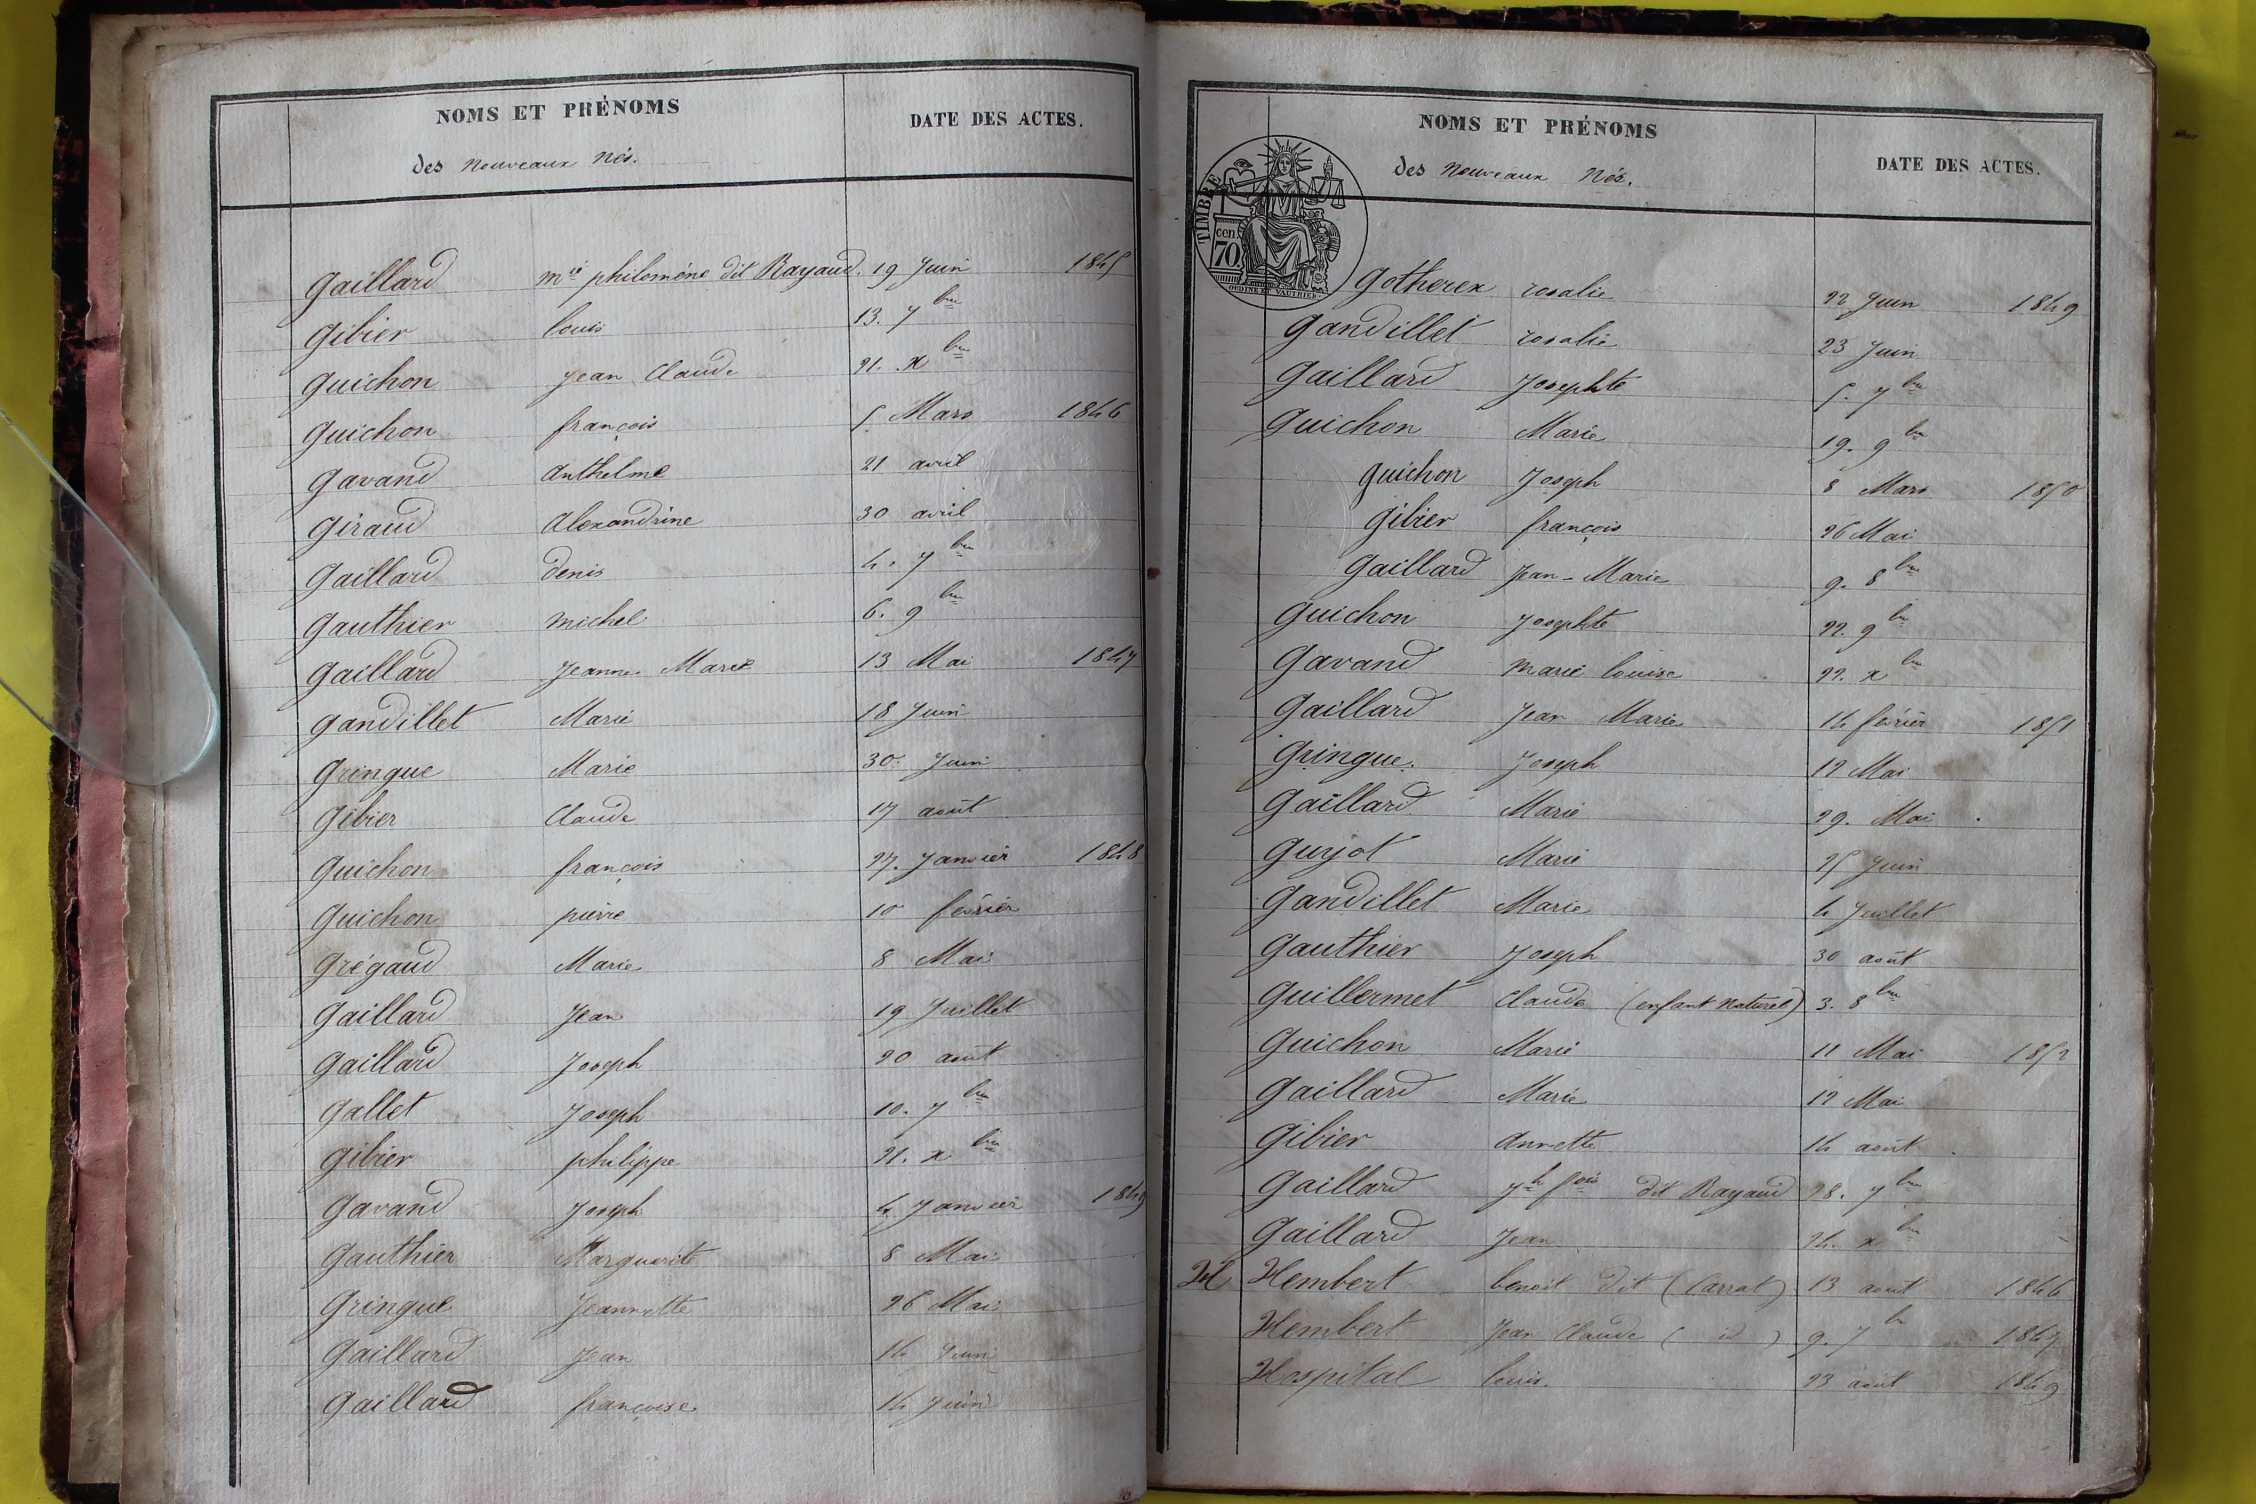 NOMS ET PRÉNOMS
des Nouveaux Nés.
DATE DES ACTES.
Gaillard mie philoméne dit Rayaud. 19 Juin 1845
Gibier louis 13. 7bre
Guichon Jean Claude 21. xbre
Guichon françois 5 Mars 1846
Gavand Anthelme 21 avril
Giraud Alexandrine 30 avril
Gaillard denis 4. 7bre
Gauthier michel 6. 9bre
Gaillard Jeanne Marie 13 Mai 1847
Gandillet Marie 18 Juin
Gringue Marie 30. Juin
Gibier Claude 17 août
Guichon françois 27. Janvier 1848
Guichon pierre 10 février
Grégaud Marie 8 Mai
Gaillard Jean 19 Juillet
Gaillard Joseph 20 août
Gallet Joseph 10. 7bre
Gibier philippe 21. xbre
Gavand Joseph 4 Janvier 1849
Gauthier Marguerite 8 Mai
Gringue Jeannette 26 Mai
Gaillard Jean 14 Juin
Gaillard françoise 14 Juin
NOMS ET PRÉNOMS
des Nouveaux Nés.
DATE DES ACTES.
TIMBRE
70 cen
ORDINE ET VAUTHIER
Gotherex rosalie 22 Juin 1849
Gandillet rosalie 23 Juin
Gaillard Josephte 5. 7bre
Guichon Marie 19. 9bre
Guichon Joseph 8 Mars 1850
Gibier françois 26 Mai
Gaillard Jean-Marie 9. 8bre
Guichon Josephte 22. 9bre
Gavand Marie louise 22. xbre
Gaillard Jean Marie 14 février 1851
Gringue. Joseph 12 Mai
Gaillard Marie 29. Mai
Guyot Marie 25 Juin
Gandillet Marie 4 Juillet
Gauthier Joseph 30 août
Guillermet Claude (enfant Naturel) 3. 8bre
Guichon Marie 11 Mai 1852
Gaillard Marie 12 Mai
Gibier Annette 14 août
Gaillard Jh fois dit Rayaud 28. 7bre
Gaillard Jean 24. xbre
H Hembert benoit dit (Carrat) 13 août 1846
Hembert Jean Claude ( id ) 9. 7bre 1847
Hospital louis. 23 août 1849